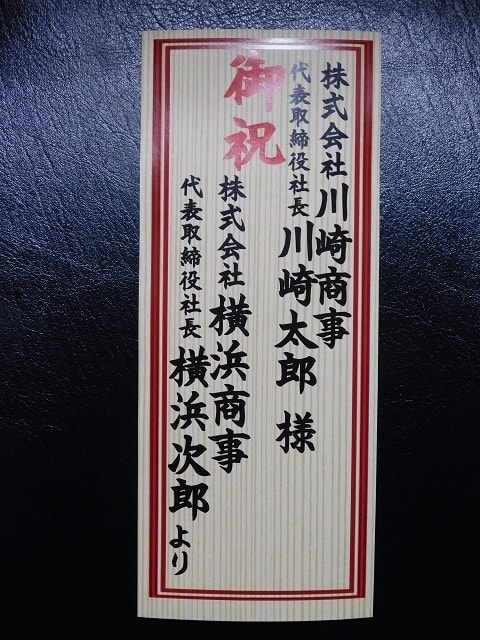 株式会社川崎商事
代表取締役社長川崎太郎 様
御祝
株式会社横浜商事
代表取締役社長 横浜次郎より